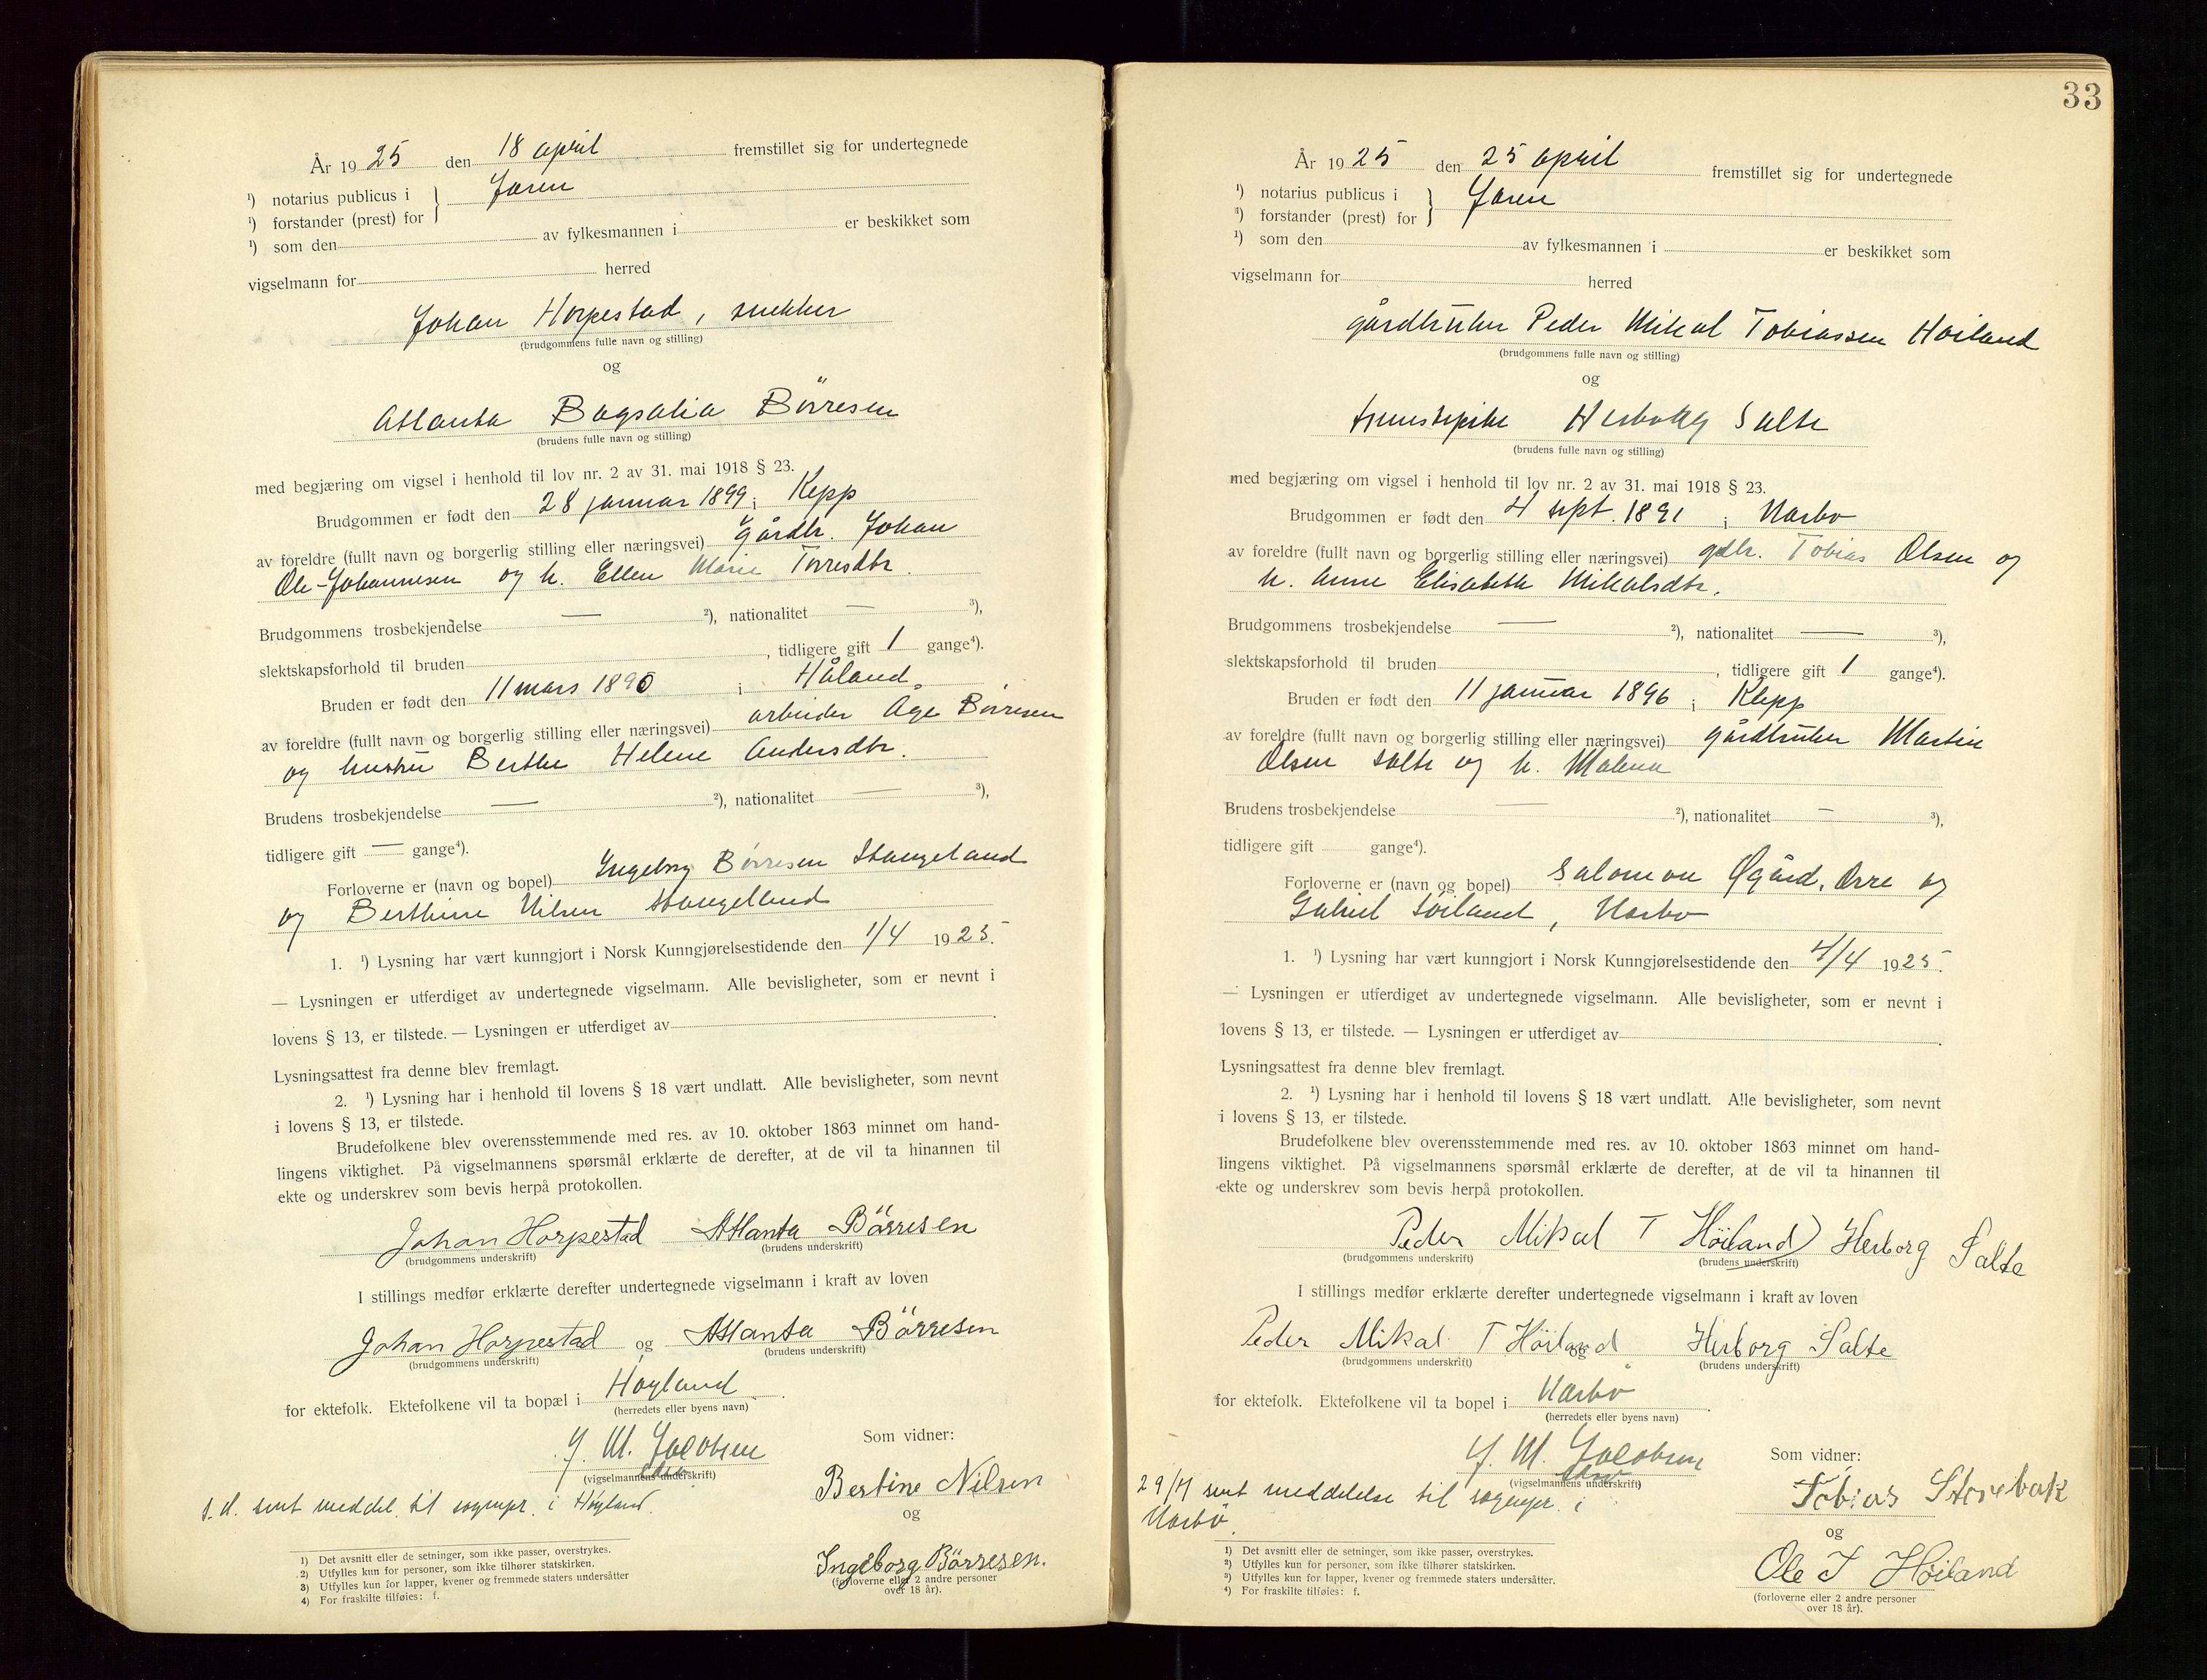 År 1925 den 18 april fremstillet sig for undertegnede
¹) notarius publicus i } Jæren
¹) forstander (prest) for
¹) som den av fylkesmannen i er beskikket som
vigselmann for herred
Johan Horpestad, snekker
(brudgommens fulle navn og stilling)
og
Atlanta Bogsalia Börresen
(brudens fulle navn og stilling)
med begjæring om vigsel i henhold til lov nr. 2 av 31. mai 1918 § 23.
Brudgommen er født den 28 januar 1899 i Klepp
av foreldre (fullt navn og borgerlig stilling eller næringsvei) gårdbr. Johan
Ole-Johannesen og h. Ellen Marie Torresdtr.
Brudgommens trosbekjendelse — ²), nationalitet — ³),
slektskapsforhold til bruden , tidligere gift 1 gange⁴).
Bruden er født den 11 mars 1890 i Håland.
av foreldre (fullt navn og borgerlig stilling eller næringsvei) arbeider Åge Börresen
og hustru Berthe Helene Andersdtr.
Brudens trosbekjendelse — ²), nationalitet — ³),
tidligere gift — gange⁴).
Forloverne er (navn og bopel) Ingeborg Börresen Stangeland
og Berthine Nilsen Stangeland
1. ¹) Lysning har vært kunngjort i Norsk Kunngjørelsestidende den 1/4 1925.
— Lysningen er utferdiget av undertegnede vigselmann. Alle bevisligheter, som er nevnt i
lovens § 13, er tilstede. — Lysningen er utferdiget av .
Lysningsattest fra denne blev fremlagt.
2. ¹) Lysning har i henhold til lovens § 18 vært undlatt. Alle bevisligheter, som nevnt
i lovens § 13, er tilstede.
Brudefolkene blev overensstemmende med res. av 10. oktober 1863 minnet om hand-
lingens viktighet. På vigselmannens spørsmål erklærte de derefter, at de vil ta hinannen til
ekte og underskrev som bevis herpå protokollen.
Johan Horpestad Atlanta Börresen
(brudgommens underskrift) (brudens underskrift)
I stillings medfør erklærte derefter undertegnede vigselmann i kraft av loven
Johan Horpestad og Atlanta Börresen
(brudgommens underskrift) (brudens underskrift)
for ektefolk. Ektefolkene vil ta bopæl i Høyland .
(herredets eller byens navn)
J. M. Jacobsen
(vigselmannens underskrift)
Som vidner:
Bertine Nilsen
s.d. sent meddel. til sognepr. i Høyland.
og
Ingeborg Börresen.
(forloverne eller 2 andre personer
over 18 år).
1) Det avsnitt eller de setninger, som ikke passer, overstrykes.
2) Utfylles kun for personer, som ikke tilhører statskirken.
3) Utfylles kun for lapper, kvener og fremmede staters undersåtter
4) For fraskilte tilføies: f.
33
År 1925 den 25 april fremstillet sig for undertegnede
¹) notarius publicus i } Jæren
¹) forstander (prest) for
¹) som den av fylkesmannen i er beskikket som
vigselmann for herred
gårdbruker Peder Mikal Tobiassen Høiland
(brudgommens fulle navn og stilling)
og
Herborg Salte
(brudens fulle navn og stilling)
med begjæring om vigsel i henhold til lov nr. 2 av 31. mai 1918 § 23.
Brudgommen er født den 4 sept. 1891 i Nærbo
av foreldre (fullt navn og borgerlig stilling eller næringsvei) gdbr. Tobias Olsen og
h. Anne Elisabeth Mikalsdtr.
Brudgommens trosbekjendelse — ²), nationalitet — ³),
slektskapsforhold til bruden , tidligere gift 1 gange⁴).
Bruden er født den 11 januar 1896 i Klepp
av foreldre (fullt navn og borgerlig stilling eller næringsvei) gårdbruker Martin
Olsen Salte og h. Malena
Brudens trosbekjendelse — ²), nationalitet — ³),
tidligere gift gange⁴).
Forloverne er (navn og bopel) Salomon Øgård, Orre og
Gabriel Høiland, Nærbo
1. ¹) Lysning har vært kunngjort i Norsk Kunngjørelsestidende den 4/4 1925.
— Lysningen er utferdiget av undertegnede vigselmann. Alle bevisligheter, som er nevnt i
lovens § 13, er tilstede. — Lysningen er utferdiget av .
Lysningsattest fra denne blev fremlagt.
2. ¹) Lysning har i henhold til lovens § 18 vært undlatt. Alle bevisligheter, som nevnt
i lovens § 13, er tilstede.
Brudefolkene blev overensstemmende med res. av 10. oktober 1863 minnet om hand-
lingens viktighet. På vigselmannens spørsmål erklærte de derefter, at de vil ta hinannen til
ekte og underskrev som bevis herpå protokollen.
Peder Mikal T Höiland) Herborg Salte
(brudgommens underskrift) (brudens underskrift)
I stillings medfør erklærte derefter undertegnede vigselmann i kraft av loven
Peder Mikal T Höiland og Herborg Salte
(brudgommens underskrift) (brudens underskrift)
for ektefolk. Ektefolkene vil ta bopel i Nærbo .
(herredets eller byens navn)
J. M. Jacobsen
(vigselmannens underskrift)
Som vidner:
29/4 sent meddelelse til sognepr. i
Nærbø.
Tobias Storebak
og
Ole T Höiland
(forloverne eller 2 andre personer
over 18 år).
1) Det avsnitt eller de setninger, som ikke passer, overstrykes.
2) Utfylles kun for personer, som ikke tilhører statskirken.
3) Utfylles kun for lapper, kvener og fremmede staters undersåtter.
4) For fraskilte tilføies: f.